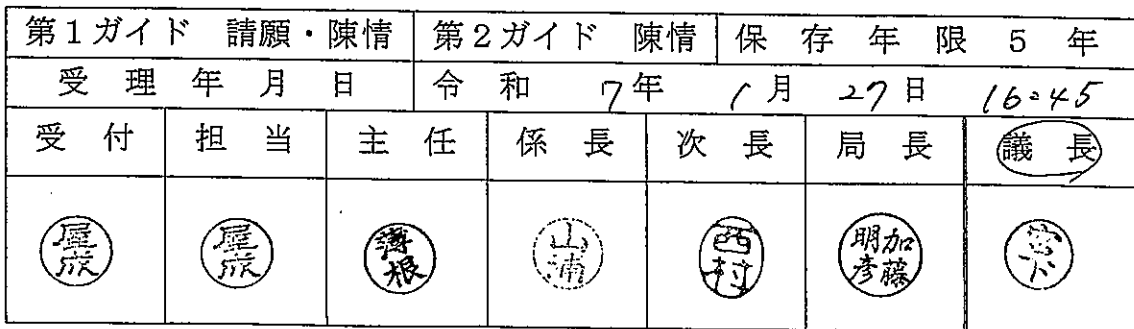 第1ガイド 請願・陳情 第2ガイド 陳情 保存年限5年
受理年月日 令和7年1月27日 16:45
受付 担当 主任 係長 次長 局長 議長
屋成 屋成 溝根 山浦 西村 加藤明彦 宮下